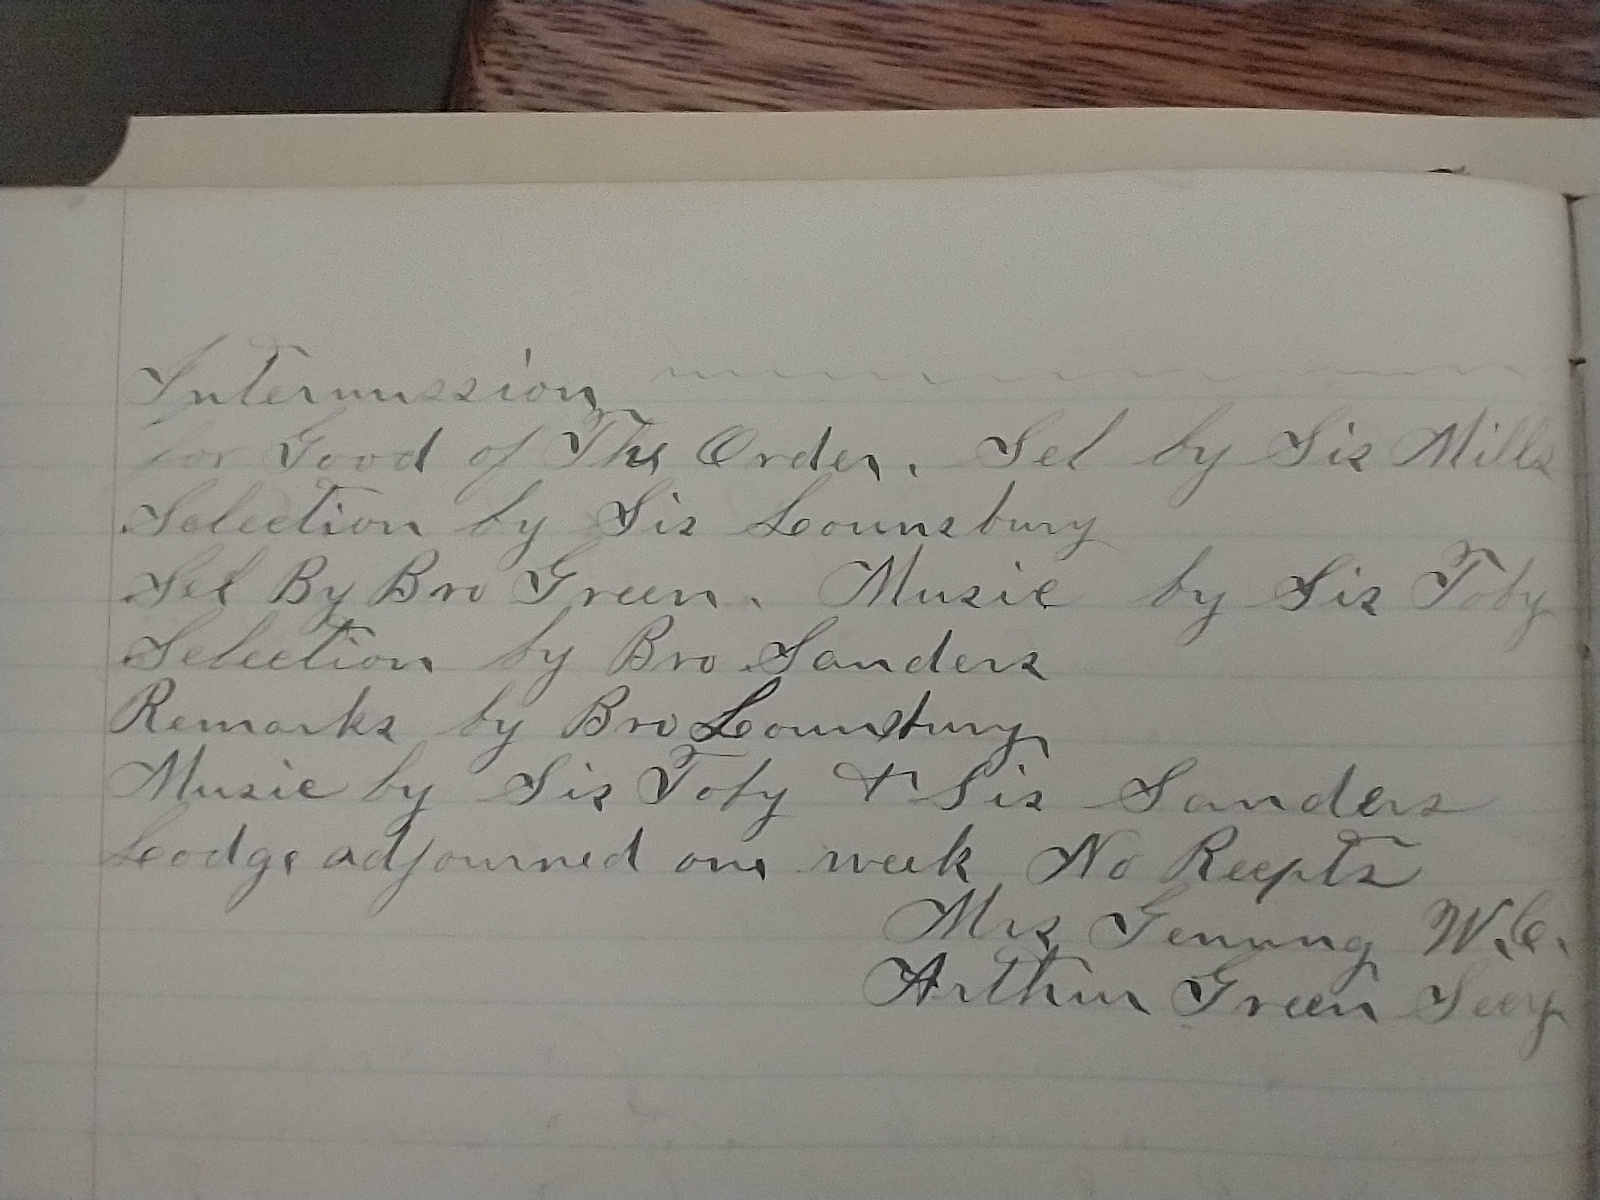 Intermission
for Good of The Order. Sel by Sis Mills
Selection by Sis Lounsbury
Sel By Bro Green. Music by Sis Toby
Selection by Bro Sanders
Remarks by Bro Lounsbury.
Music by Sis Toby & Sis Sanders
Lodge adjourned one week No Recpts
Mrs Fenyong W.C.
Arthur Green Secy